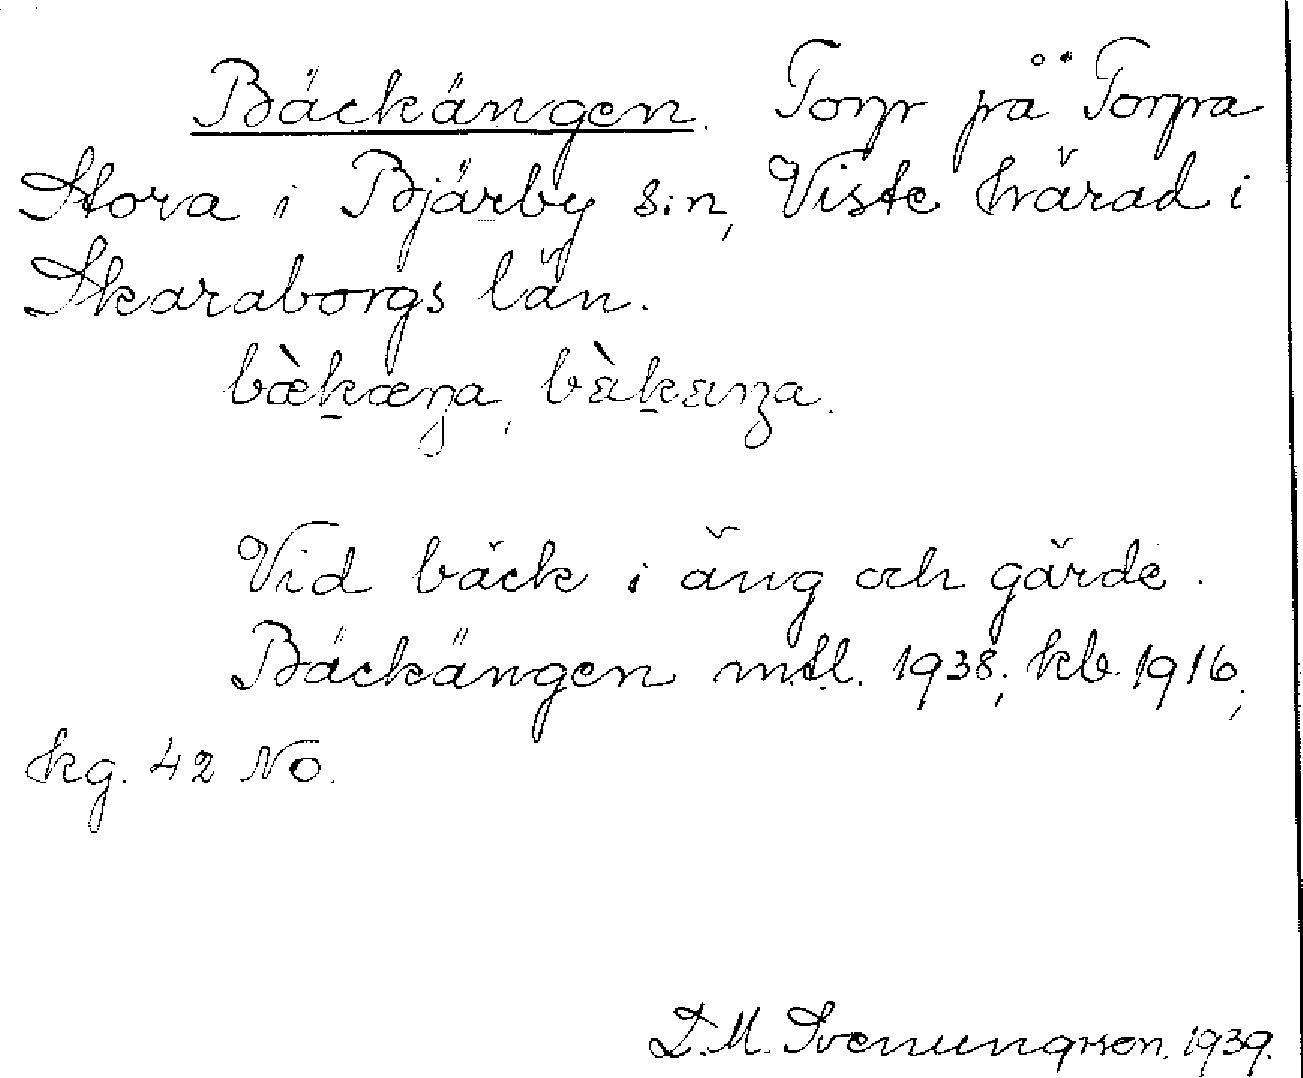 Bäckängen. Torp på Torpa
Stora i Bjärby s:n, Viste härad i
Skaraborgs län.
bæ̀k̠æŋa, bɛ̀k̠ɛŋa.
Vid bäck i äng och gärde.
Bäckängen mtl. 1938; kb. 1916;
kg. 42 No.
D.M. Svenungsson. 1939.